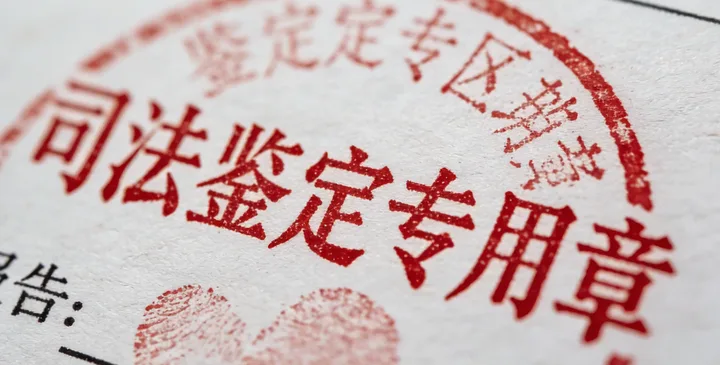 鉴定定专区章
司法鉴定专用章
告: